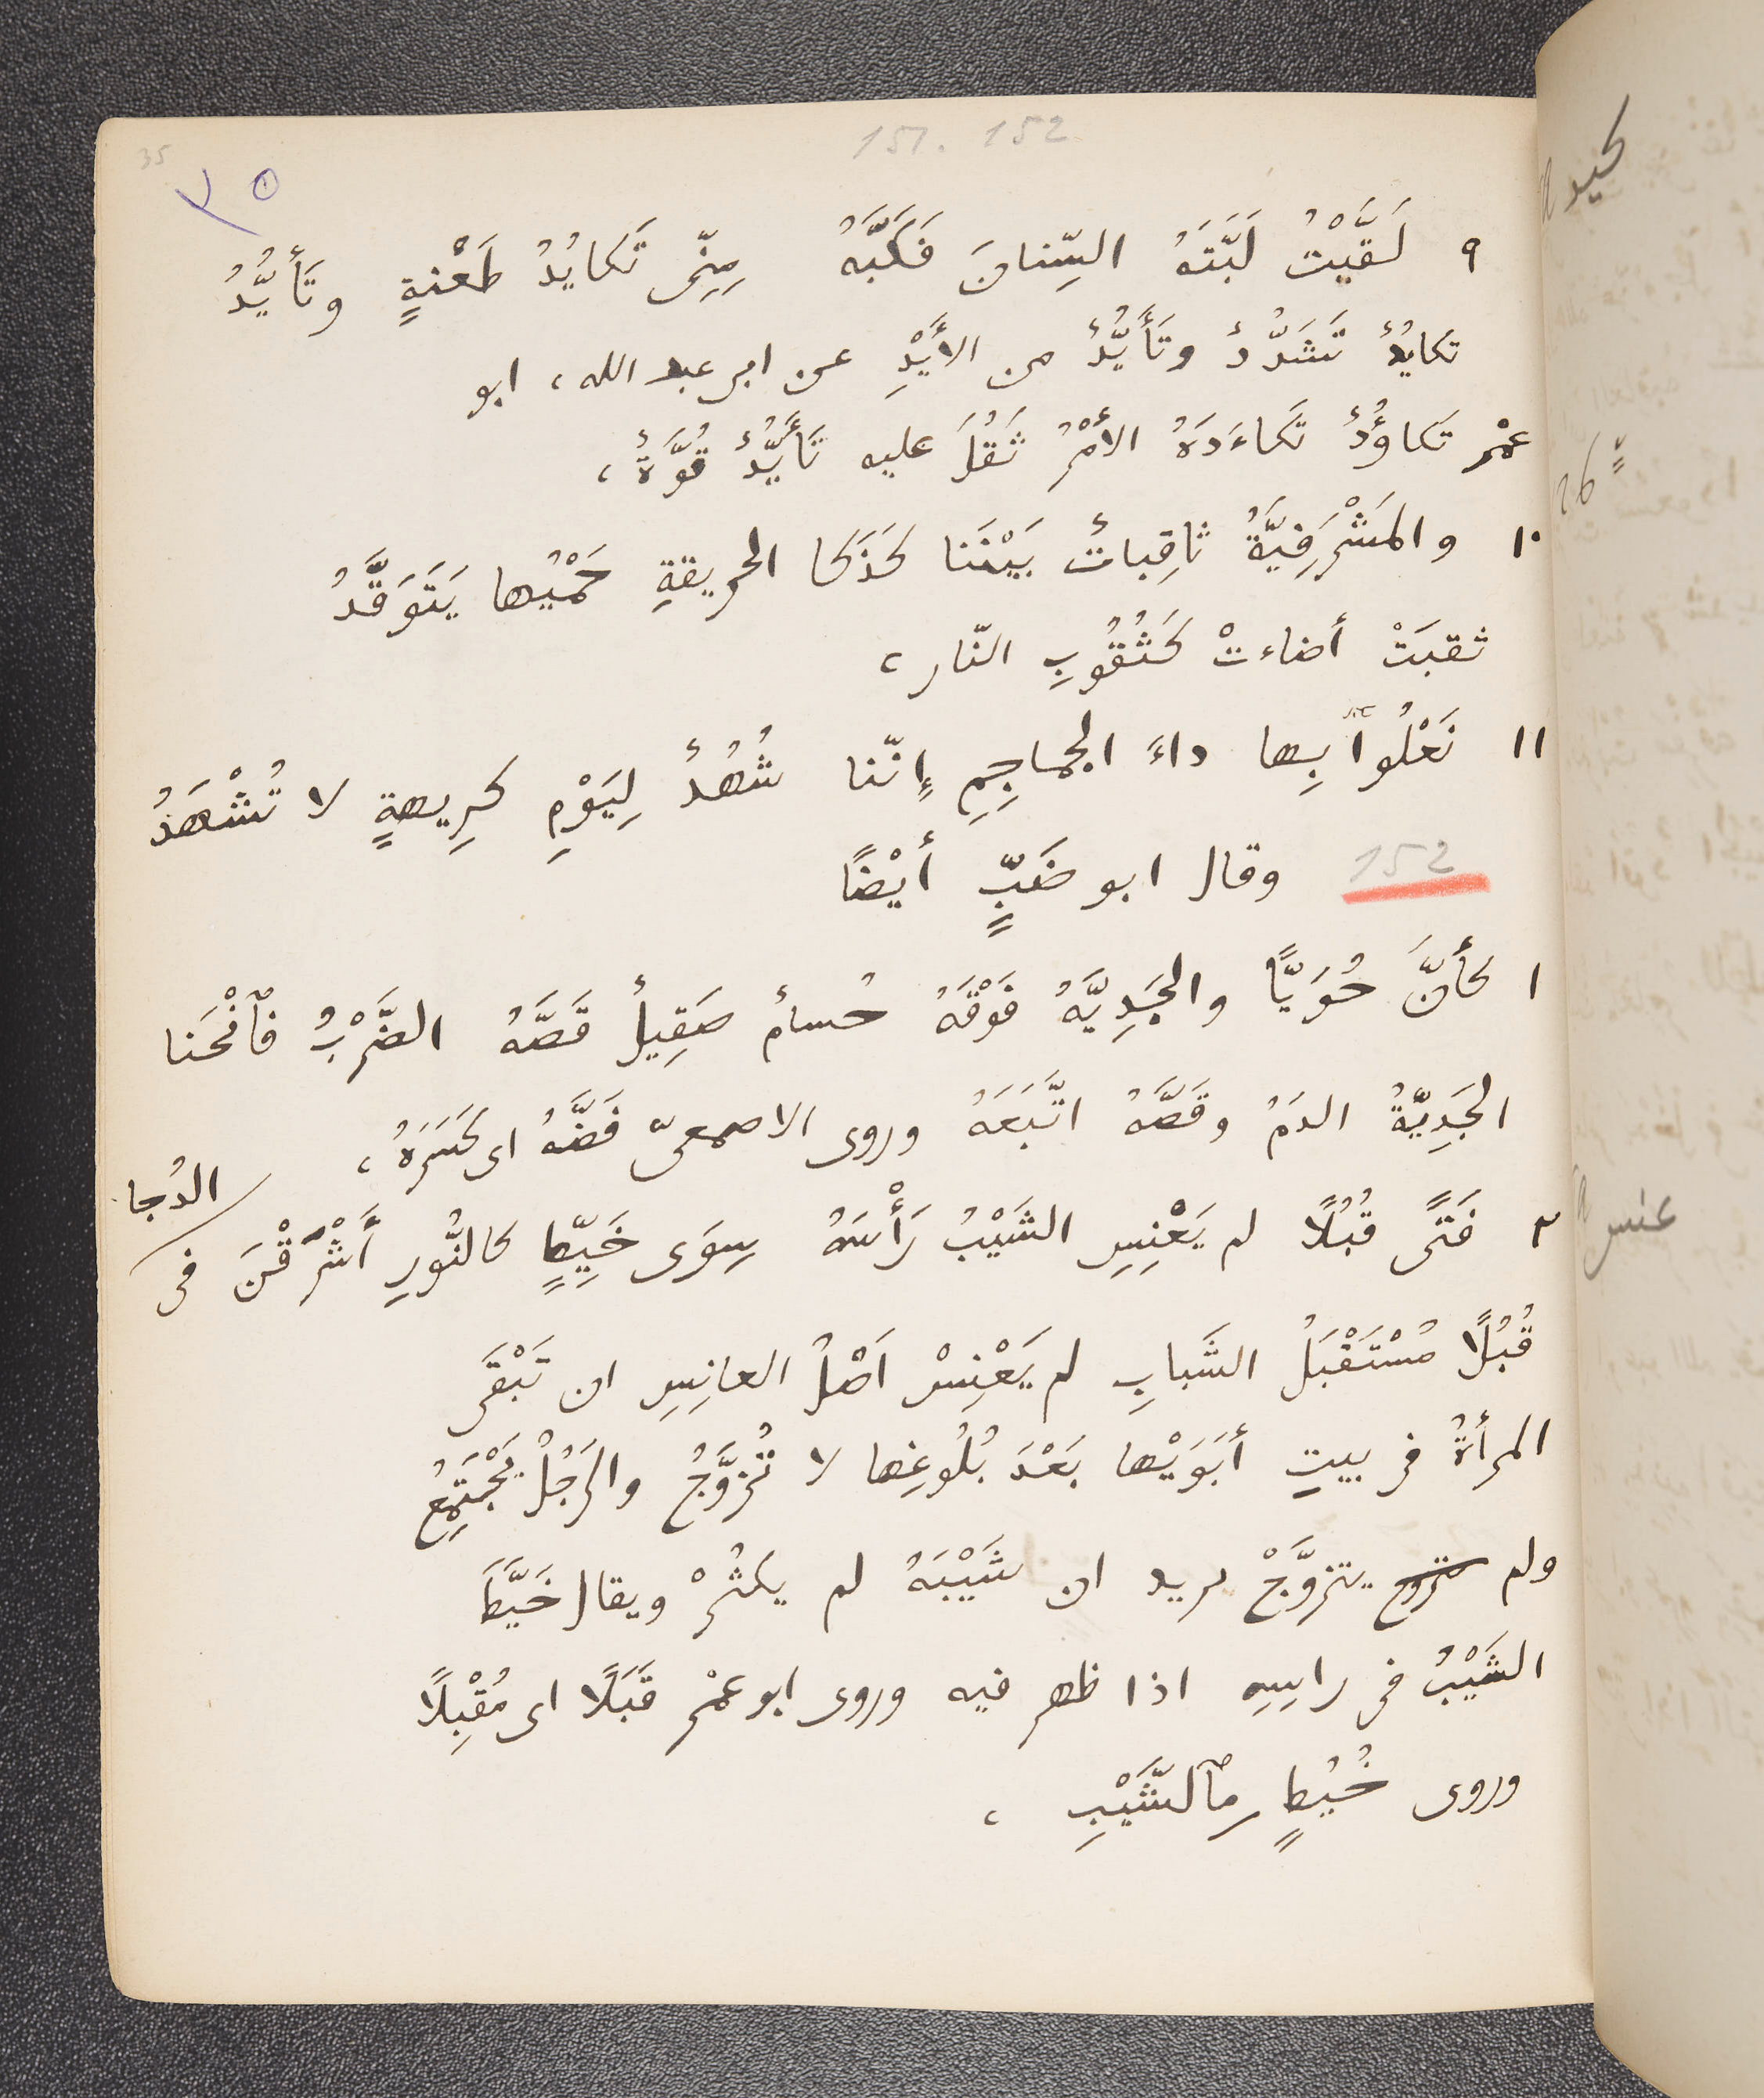 151. 152
35
٣٥
٩ لَقَّيْتُ لَبَّتَهُ السِّنانَ فَكَبَّهُ مِنِّى تَكايُدُ طَعْنةٍ وتَأيُّدُ
تكايُدٌ تَشَدُّدٌ وتَأَيُّدٌ من الأَيْدِ عن ابى عبد الله، ابو
عمْرٍ تَكاوُدٌ تَكاءَدَهُ الأمْرُ ثَقُلَ عليه تَأَيُّدٌ قُوَّةٌ،
١٠ والمَشْرَفِيَّةُ ثاقِباتٌ بَيْنَنا كَذَكا الحريقةِ حَمْيُها يَتَوَقَّدُ
ثقبَتْ أضاءتْ كَثُقُوبِ النّار،
١١ نَعْلُوا بِها داءَ الجماجِمِ إنّنا شُهُدٌ لِيَوْمِ كرِيهةٍ لا تُشْهَدُ
sic
152 وقال ابو ضَبٍّ أيْضًا
١ كأنَّ حُوَيًّا والجَدِيَّةُ فَوْقَهُ حُسامٌ صَقِيلٌ قَصَّهُ الضَّرْبُ فٱنْحَنا
الجَدِيّةُ الدمُ وقَصَّهُ اتَّبَعَهُ وروى الاصمعىّ فَضَّهُ اى كَسَرَهُ،
٢ فَتًى قُبُلًا لم يَعْنِسِ الشَيْبُ رَأْسَهُ سِوَى خَيِّطٍ كالنُّورِ أَشْرَقْنَ فى الدُجا
قُبُلًا مُسْتَقْبَلُ الشَبابِ لم يَعْنِسْ اَصْلُ العانِسِ ان تَبْقَى
المرأةُ فى بيتِ أَبَوَيْها بَعْدَ بُلُوغِها لا تُزوَّجُ والرَجُلُ يَجْتَمِعُ
ولم يتزوَّجْ يريد ان شَيْبَهُ لم يكثُرْ ويقال خَيَّطَ
الشَيْبُ فى راسِهِ اذا ظهر فيه وروى ابو عمْرٍ قَبَلًا اى مُقْبِلًا
وروى خُيُطٍ مِٱلشَّيْبِ،
كيد
26
عنس